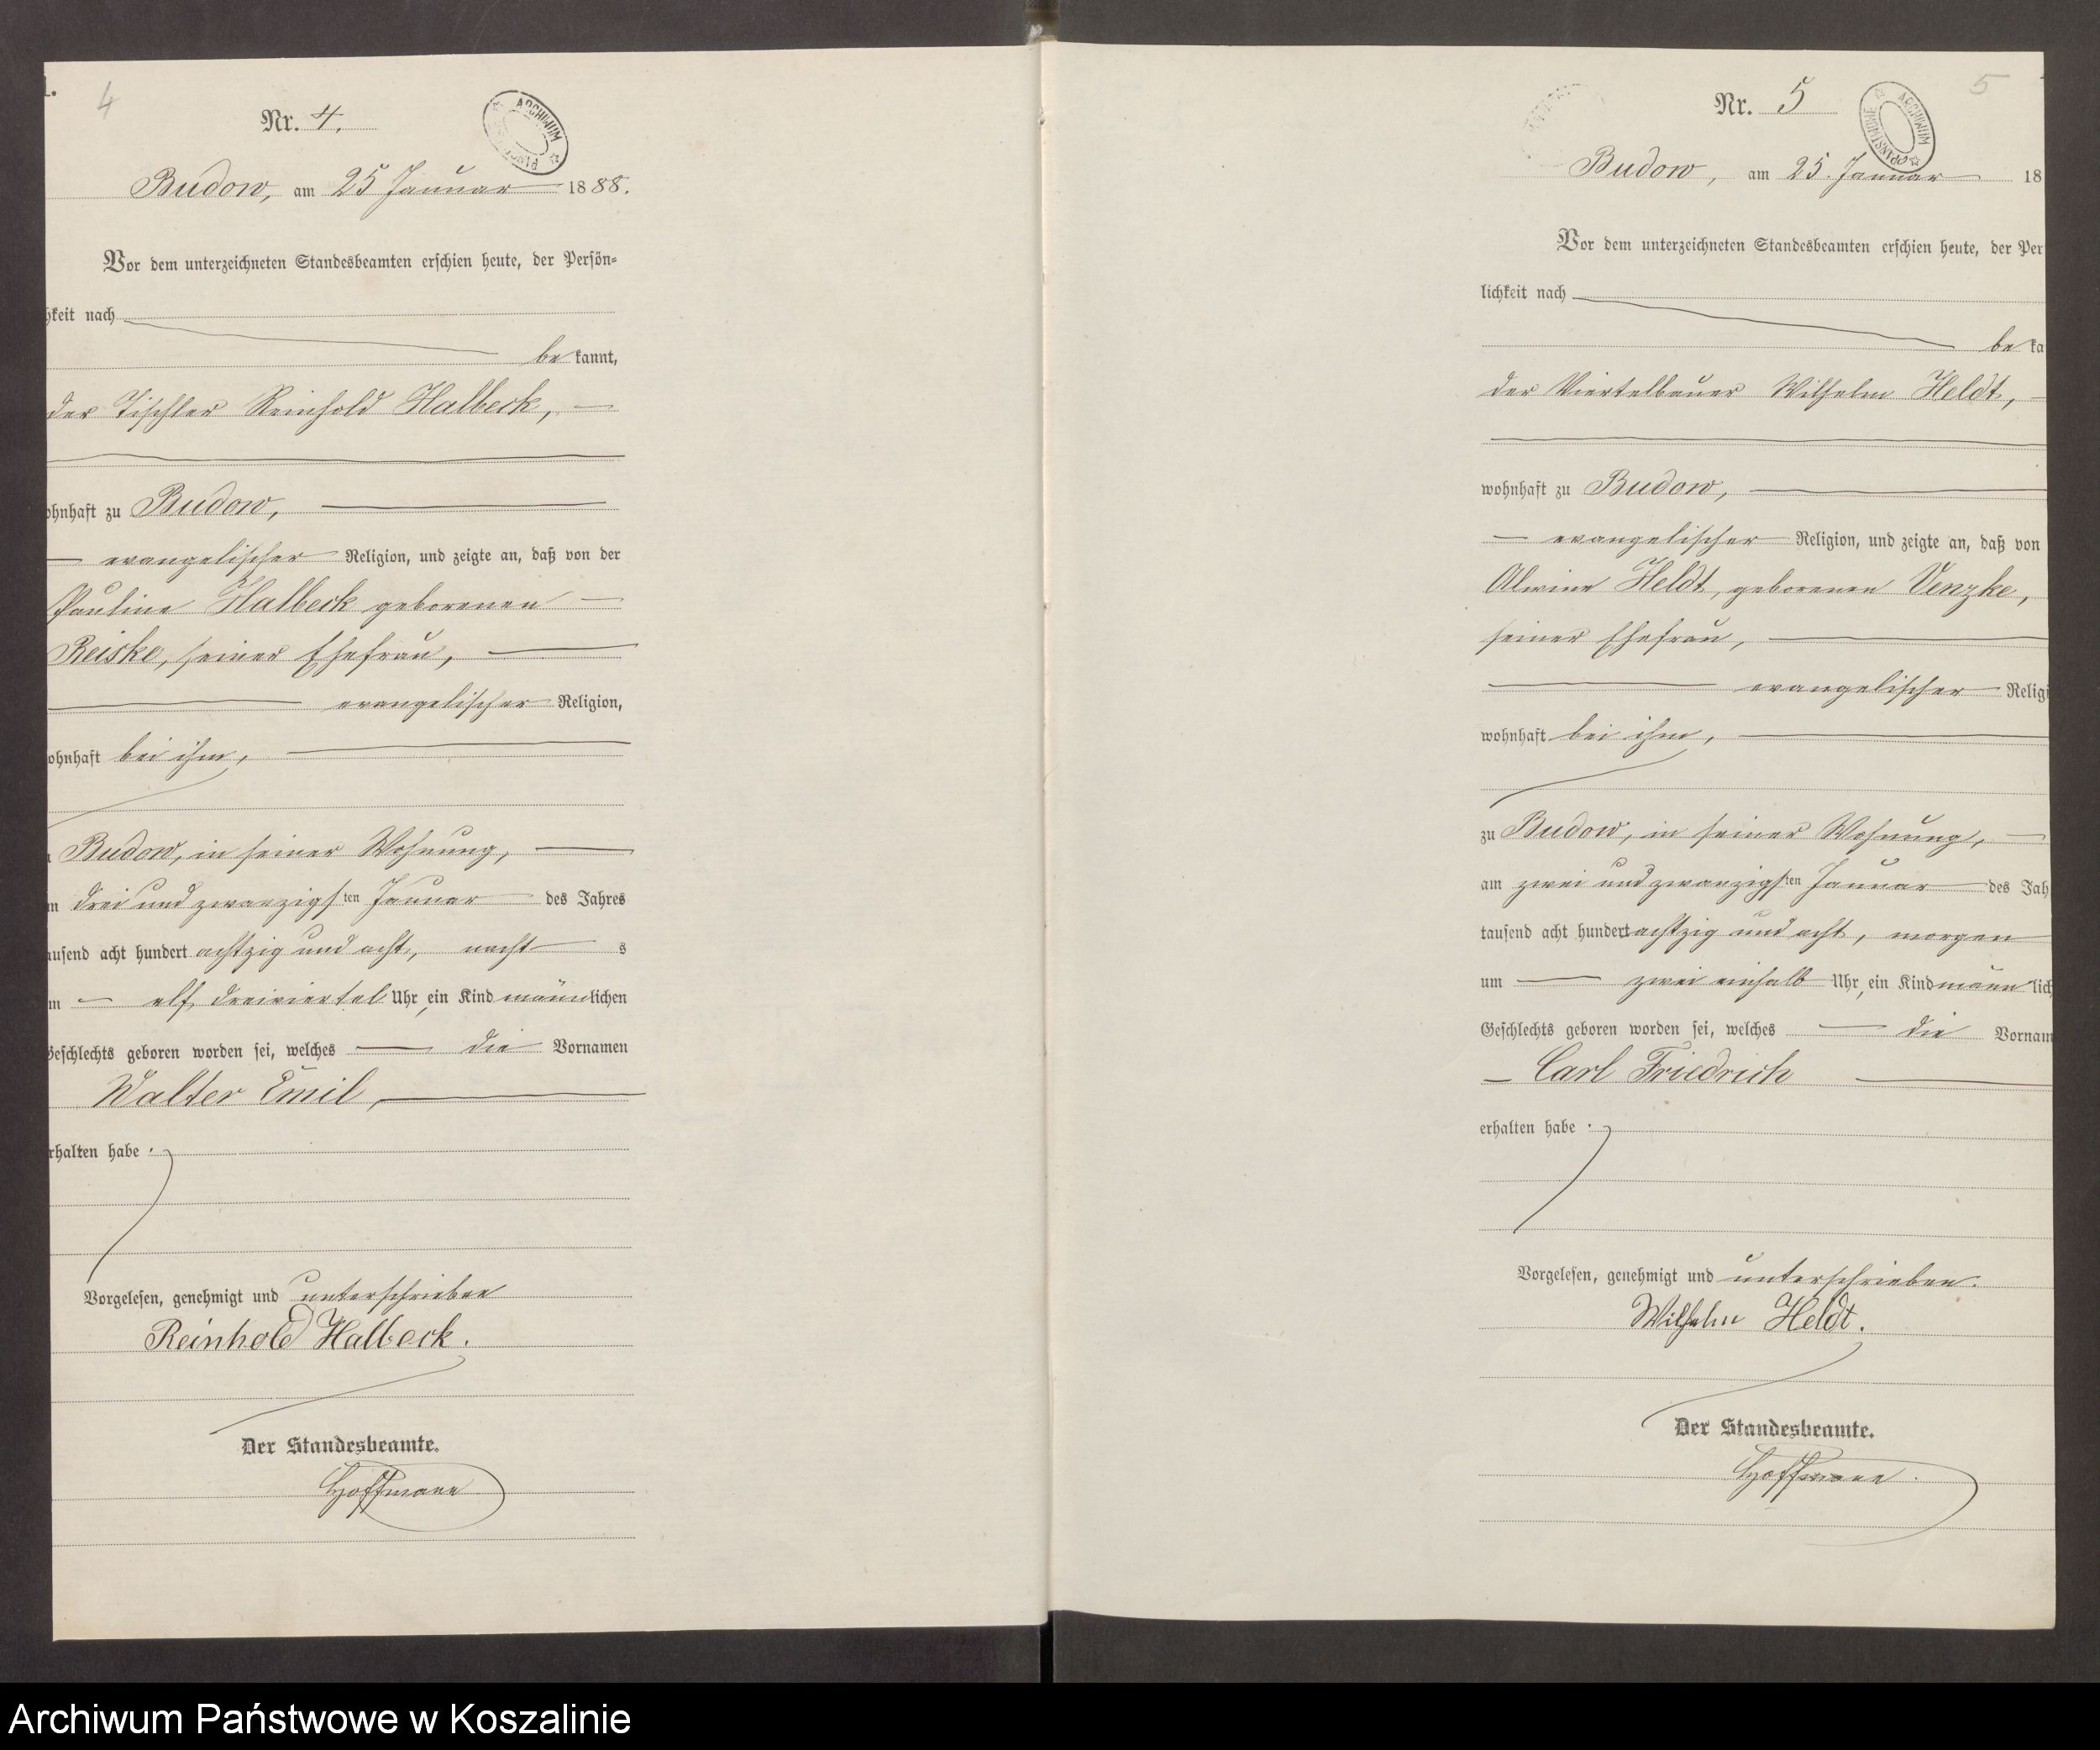 4
Nr. 4.
ARCHIWUM
Budow, am 25 Januar 1888.
Vor dem unterzeichneten Standesbeamten erschien heute, der Persön=
hkeit nach
be kannt,
der Tischler Reinhold Halbeck,
ohnhaft zu Budow,
evangelischer Religion, und zeigte an, daß von der
Pauline Halbeck geborenen
Reiske, seiner Ehefrau,
evangelischer Religion,
ohnhaft bei ihm,
Budow, in seiner Wohnung,
m drei und zwanzigsten Januar des Jahres
ausend acht hundert achtzig und acht, nacht s
m elf dreiviertel Uhr, ein Kind männlichen
Geschlechts geboren worden sei, welches die Vornamen
Walter Emil,
rhalten habe.
Vorgelesen, genehmigt und unterschrieben
Reinhold Halbeck.
Der Standesbeamte.
Hoffmann
5
Nr. 5
ARCHIWUM PAŃSTWOWE
Budow, am 25. Januar 18
Vor dem unterzeichneten Standesbeamten erschien heute, der Per
lichkeit nach
be ka
der Viertelbauer Wilhelm Heldt,
wohnhaft zu Budow,
evangelischer Religion, und zeigte an, daß von
Alwine Heldt, geborenen Venzke,
seiner Ehefrau,
evangelischer Religi
wohnhaft bei ihm,
zu Budow, in seiner Wohnung,
am zwei und zwanzigsten Januar des Jah
tausend acht hundert achtzig und acht, morgen
um zwei einhalb Uhr, ein Kind männ lich
Geschlechts geboren worden sei, welches die Vornam
Carl Friedrich
erhalten habe.
Vorgelesen, genehmigt und unterschrieben.
Wilhelm Heldt.
Der Standesbeamte.
Hoffmann.
Archiwum Państwowe w Koszalinie